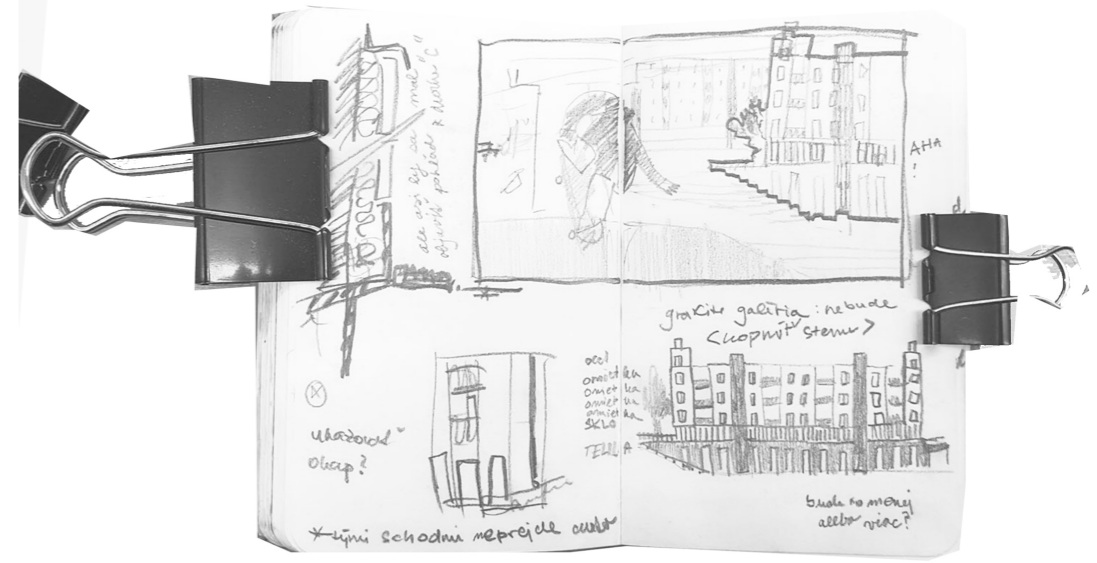 ale asi by sa mal
objaviť pohľad z dvoru "C"
AHA
!
galéria : nebude
<kopnúť stenu>
oceľ
omietka
omietka
omietka
omietka
SKLO
TEHLA
okap?
tými schodmi neprejde
bude to menej
alebo viac?